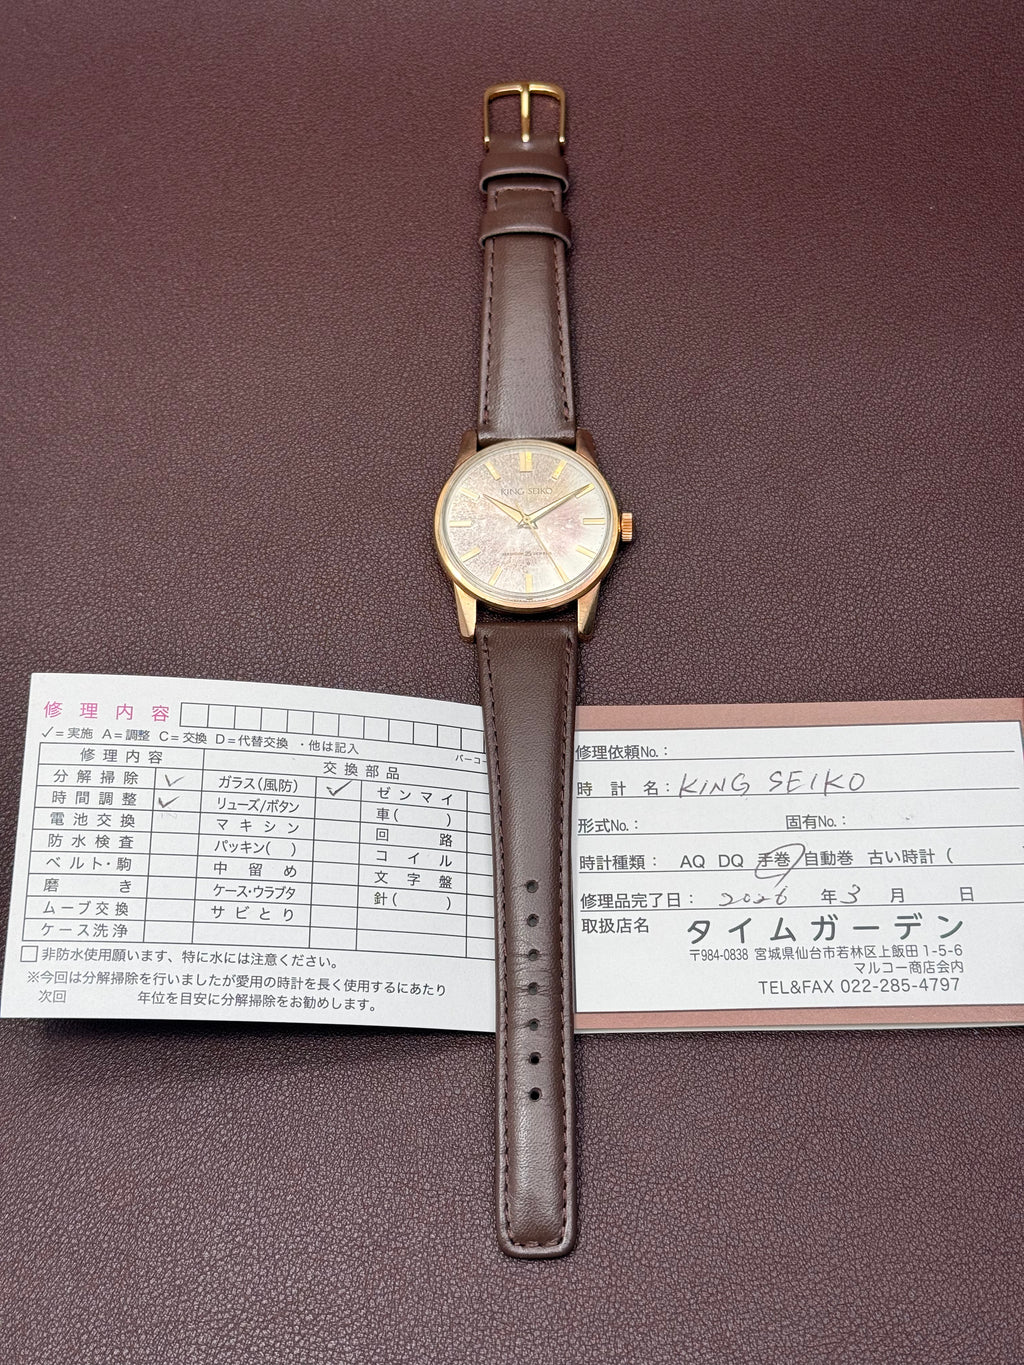 KING SEIKO
25
修理内容
✓=実施 A=調整 C=交換 D=代替交換 ・他は記入
バーコー
修理内容
交換部品
分解掃除 ✓
ガラス(風防) ✓
ゼンマイ
時間調整 ✓
リューズ/ボタン
車( )
電池交換
マキシン
回路
防水検査
パッキン( )
コイル
ベルト・駒
中留め
文字盤
磨き
ケース・ウラブタ
針( )
ムーブ交換
サビとり
ケース洗浄
非防水使用願います、特に水には注意ください。
※今回は分解掃除を行いましたが愛用の時計を長く使用するにあたり
次回 年位を目安に分解掃除をお勧めします。
修理依頼No.:
時計名: KING SEIKO
形式No.: 固有No.:
時計種類: AQ DQ 手巻 自動巻 古い時計(
修理品完了日: 2026 年 3 月 日
取扱店名 タイムガーデン
〒984-0838 宮城県仙台市若林区上飯田1-5-6
マルコー商店会内
TEL&FAX 022-285-4797